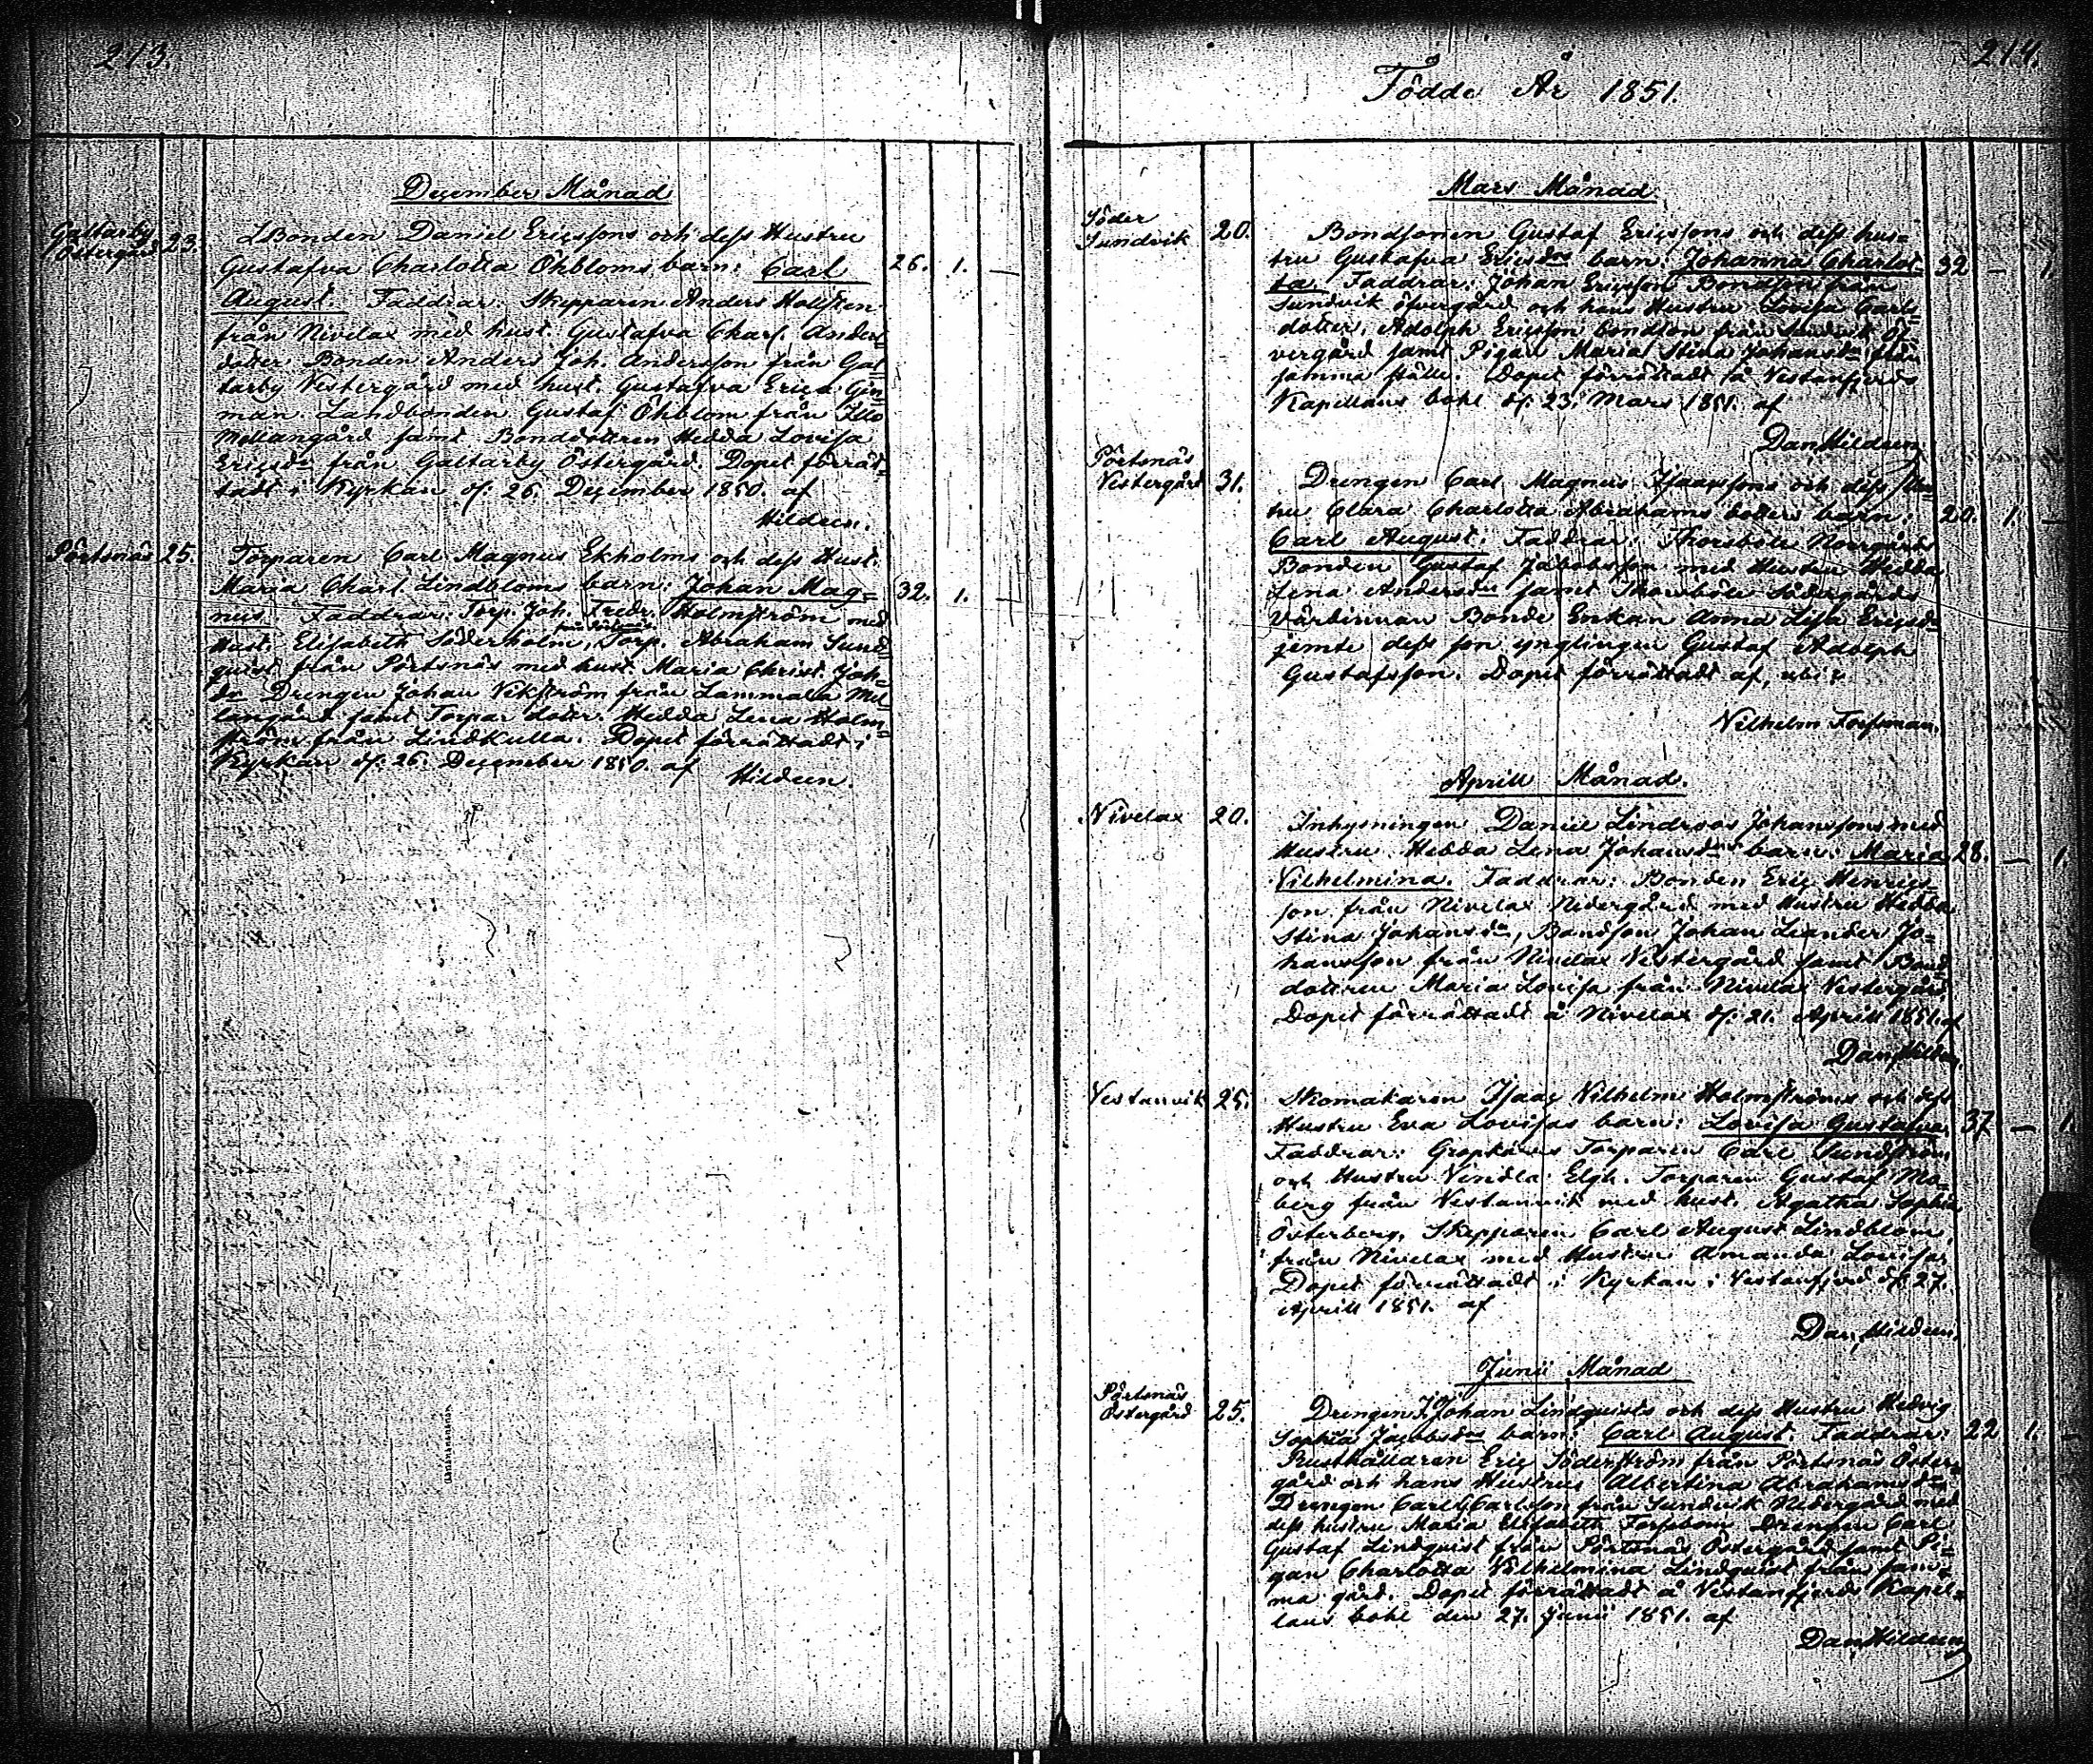 213.
December Månad
Galtarby Östergård 23.
LBonden Daniel Ericssons och dess Hustru
Gustafva Charlotta Öhbloms barn: Carl 26. 1. —
August. Faddrar. Skepparen Anders Holsten
från Nivelax med hust. Gustafva Charl. Anders
dotter. Bonden Anders Joh. Andersson från Gal=
tarby Vestergård med hust. Gustafva Erica Gin=
man. Landbonden Gustaf Öhblom från Illo
Mellangård samt Bonddottren Hedda Lovisa
Ericsdr från Galtarby Östergård. Dopet förrät=
tadt i Kyrkan d: 26. December 1850. af
Hildeen.
Pörtsnäs 25.
Torparen Carl Magnus Ekholms och dess Hust.
Maria Charl. Lindbloms barn: Johan Mag= 32. 1. —
nus. Faddrar. Torp. Joh. Fredr. Holmström med
hust. Elisabeth Söderholm, Torp. Abraham Sund=
quist från Pörtsnäs med hust. Maria Christ. Joh=
dr Drengen Johan Vikström från Lammala Mel=
langård samt Torpar dottr. Hedda Lena Holm=
ström från Lindkulla. Dopet förrättadt i
Kyrkan d: 26. December 1850. af
Hildeen.
214.
Födde År 1851.
Mars Månad
Söder Sundvik 20.
Bondsonen Gustaf Ericssons och dess hus=
tru Gustafva Ericsdrs barn: Johanna Charlot= 32 — 1.
ta. Faddrar: Johan Ericsson Bondson från
Sundvik öfvergård och hans Hustru Lovisa Carls
dotter. Adolph Ericsson bondson från Sundvik Öf
vergård samt Pigan Maria Stina Johansdr från
samma ställe. Dopet förrättadt å Vestanfjerds
Kapellans bohl d: 23. Mars 1851. af
Dan Hildeen
Pörtsnäs Vestergård 31.
Drengen Carl Magnus Isaacssons och dess Hus=
tru Clara Charlotta Abrahams dotters barn: 20. 1. —
Carl August. Faddrar: Thorsböle Norrgårds
Bonden Gustaf Jacobsson med Hustru Hedda
Lena Andersdr samt Thorsböle Södergårds
Värdinnan Bonde Enkan Anna Lisa Ericsdr
jemte dess son ynglingen Gustaf Adolph
Gustafsson. Dopet förrättadt af, ubi:
Vilhelm Forssman.
Aprill Månad.
Nivelax 20.
Inhysningen Daniel Lindroos Johanssons med
Hustru Hedda Lena Johansdrs barn: Maria 28. — 1
Vilhelmina. Faddrar: Bonden Eric Henrics=
son från Nivelax Nedergård med Hustru Hedda
Stina Johansdr, Bondson Johan Leander Jo=
hansson från Nivelax Vestergård samt Bond
dottren Maria Lovisa från Nivelax Vestergård
Dopet förrättadt å Nivelax d: 21. Aprill 1851. af
Dan Hildeen
Vestanvik 25.
Skomakaren Isaac Vilhelm Holmströms och dess
Hustru Eva Lovisas barn: Lovisa Gustafva 37 — 1.
Faddrar: Torparen Carl Sundström
och Hustru Vendla Elgh. Torparen Gustaf Mo=
berg från Vestanvik med hust. Agatha Sophia
Österberg, Skepparen Carl August Lindblom
från Nivelax med Hustru Amanda Lovisa.
Dopet förrättadt i Kyrkan i Vestanfjerd d: 27.
Aprill 1851. af
Dan Hildeen
Junii Månad
Pörtsnäs Östergård 25.
Drengen Johan Lindquists och dess Hustru Hedvig
Sophia Jacobsdrs barn: Carl August. Faddrar: 22 1. —
Rusthållaren Eric Söderström från Pörtsnäs Öster=
gård och hans Hustru Albertina Abrahamsdr
Drengen Carl Carlsson från Sundvik Nedergård med
dess hustru Maria Elisabeth Forsbom Drengen Carl
Gustaf Lindquist från Pörtsnäs Östergård samt Pi=
gan Charlotta Vilhelmina Lindquist från sam=
ma gård. Dopet förrättadt å Vestanfjerds Kapel=
lans bohl den 27. Junii 1851. af
Dan Hildeen